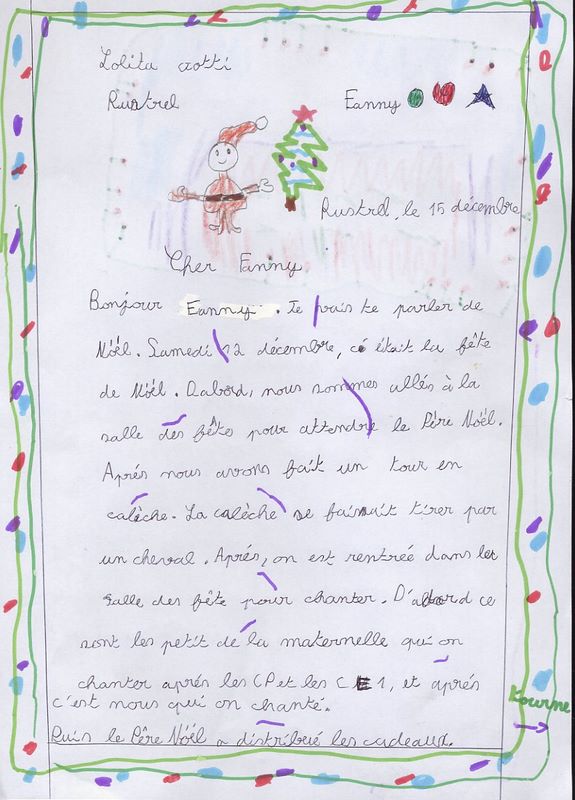 Lolita crotti
Rustrel Fanny
Rustrel, le 15 décembre
Cher Fanny
Bonjour Fanny. Je vais te parler de
Nöël. Samedi 12 décembre, cé était la fête
de Nöël. Dabord, nous sommes allés à la
salle des fêtes pour attendre le Père Nöël.
Aprés nous avons fait un tour en
calèche. La calèche se faisait tirer par
un cheval. Aprés, on est rentrée dans la
salle des fête pour chanter. D'abord ce
sont les petit de la maternelle qui on
chanter aprés les CP et les CE1, et aprés
c'est nous qui on chanté.
Puis le Père Nöël a distribué les cadeaux.
Tourne